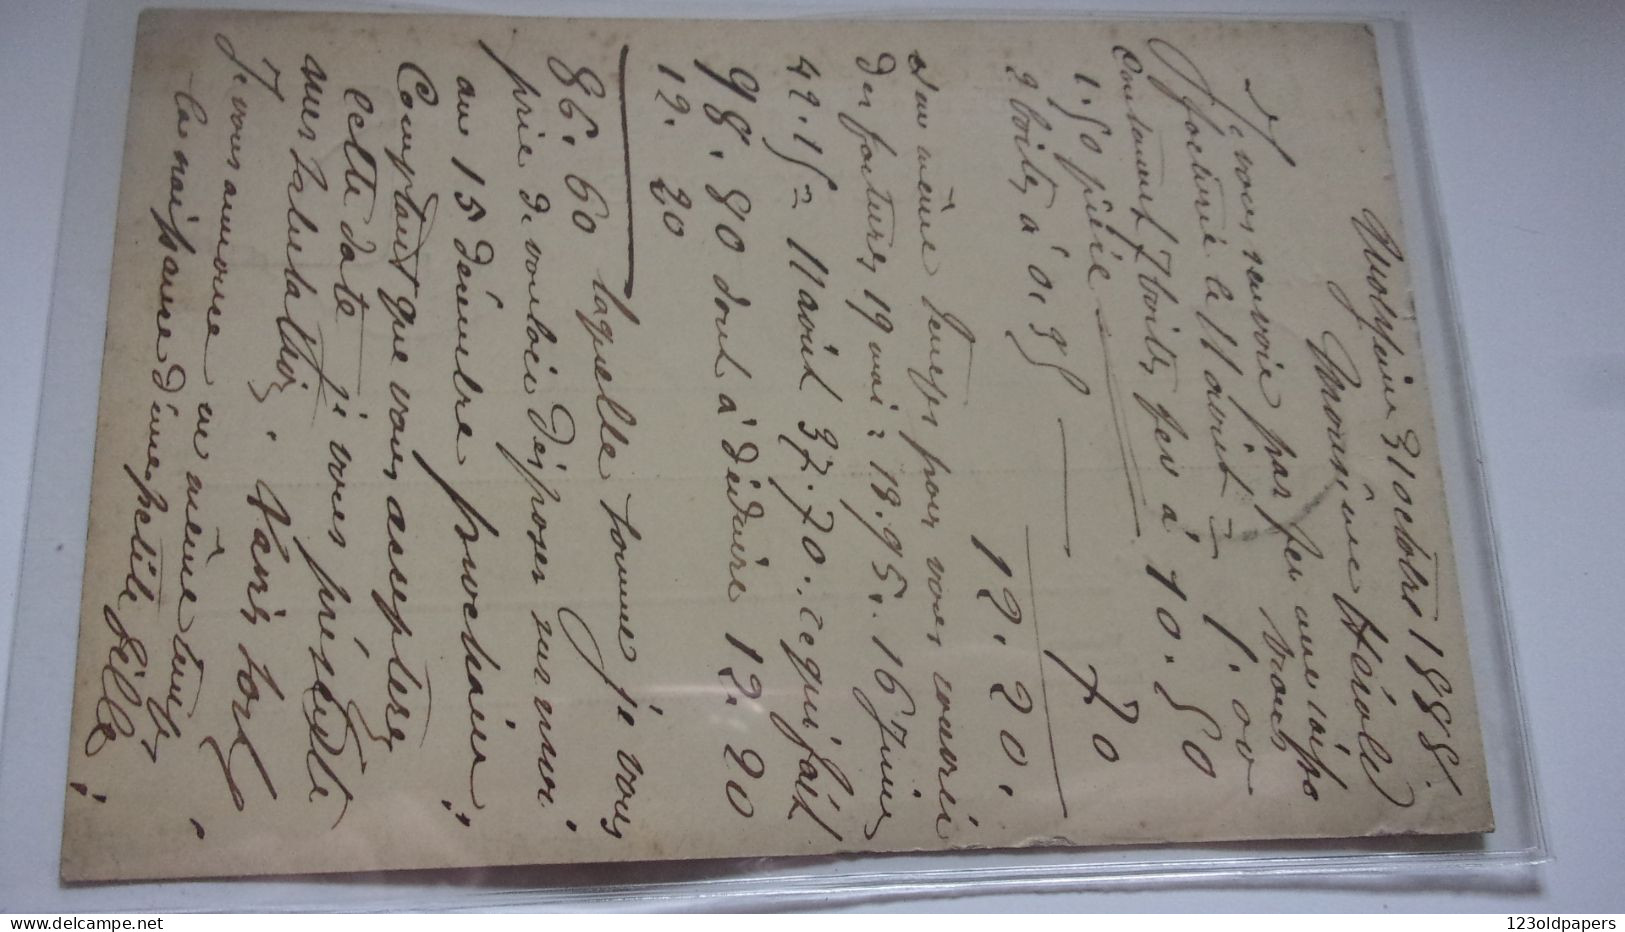 31 octobre 1888.
Monsieur Hérold
Je vous renvoie par feu
factures le 11 avril = 1.00
Contenant 7 boites feu à 10.50
1.50 pièce
2 boites à 0.35 70
12.20.
En même temps pour vous
des factures 19 mai = 18.95. 16 Juin
42.15 = 11 août 37.70. ce qui fait
98.80 dont à déduire 12.20
12.20
86.60 laquelle somme je vous
prie de vouloir disposer sur moi
au 15 décembre prochain,
Comptant que vous accepterez
cette date je vous présente
mes salutations.
Je vous annonce en même temps
la naissance d'une petite fille,
123oldpapers